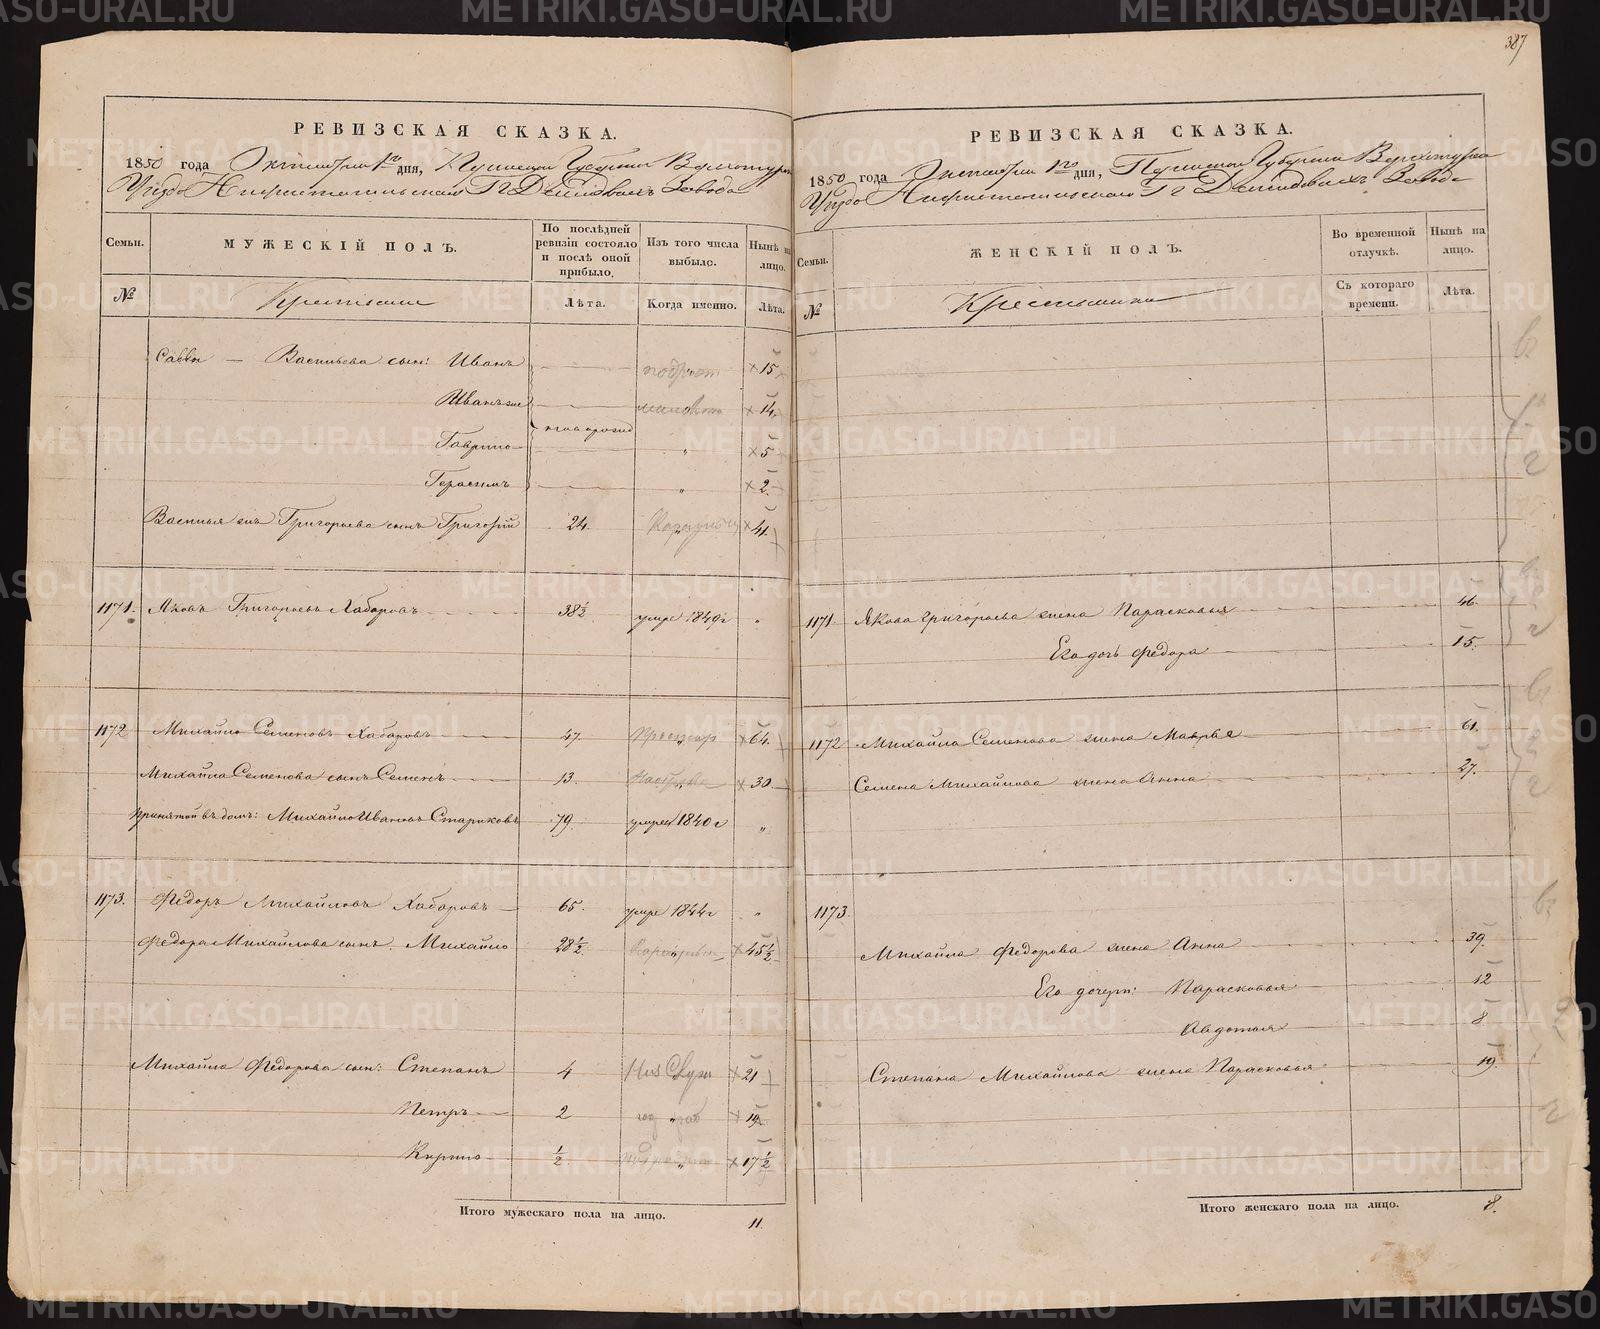 387
РЕВИЗСКАЯ СКАЗКА.
1850 года Октября 1го дня, Пермской Губернии Верхотурского
Уезда Нижнетагильского Г. г. Демидовыхъ Завода
Семьи. МУЖЕСКІЙ ПОЛЪ. По послѣдней ревизіи состояло и послѣ оной прибыло. Изъ того числа выбыло. Нынѣ на лицо.
№ Крестьяне Лѣта. Когда именно. Лѣта.
Саввы — Васильева сын: Иванъ подрост 15
Иванъ же 14
новорожд
Гаврило " 5
Герасимъ " 2
Василья же Григорьева сынъ Григорій 24. 41.
1171. Яковъ Григорьевъ Хабаровъ 38½ умре 1849г "
1172 Михайло Семеновъ Хабаровъ 47. 64.
Михайла Семенова сынъ Семенъ 13. 30.
Принятой въ домъ: Михайло Ивановъ Стариковъ 79. умре 1840г "
1173. Федоръ Михайловъ Хабаровъ 65. умре 1844г "
Федора Михайлова сынъ Михайло 28½ 45½
Михайла Федорова сын: Степанъ 4 21
Петръ 2 " 19
Кирило ½ " 17½
Итого мужескаго пола на лицо. 11
РЕВИЗСКАЯ СКАЗКА.
1850 года Октября 1го дня, Пермской Губернии Верхотурского
Уезда Нижнетагильского Г г Демидовыхъ Завода
Семьи. ЖЕНСКІЙ ПОЛЪ. Во временной отлучкѣ. Нынѣ на лицо.
№ Крестьянки Съ котораго времени. Лѣта.
1171. Якова Григорьева жена Парасковья 46.
Его дочь Федора 15.
1172 Михайла Семенова жена Мавра 61.
Семена Михайлова жена Анна 27.
1173.
Михайла Федорова жена Анна 39.
Его дочери: Парасковья 12
Авдотья 8
Степана Михайлова жена Парасковья 19.
Итого женскаго пола на лицо. 8.
METRIKI.GASO-URAL.RU